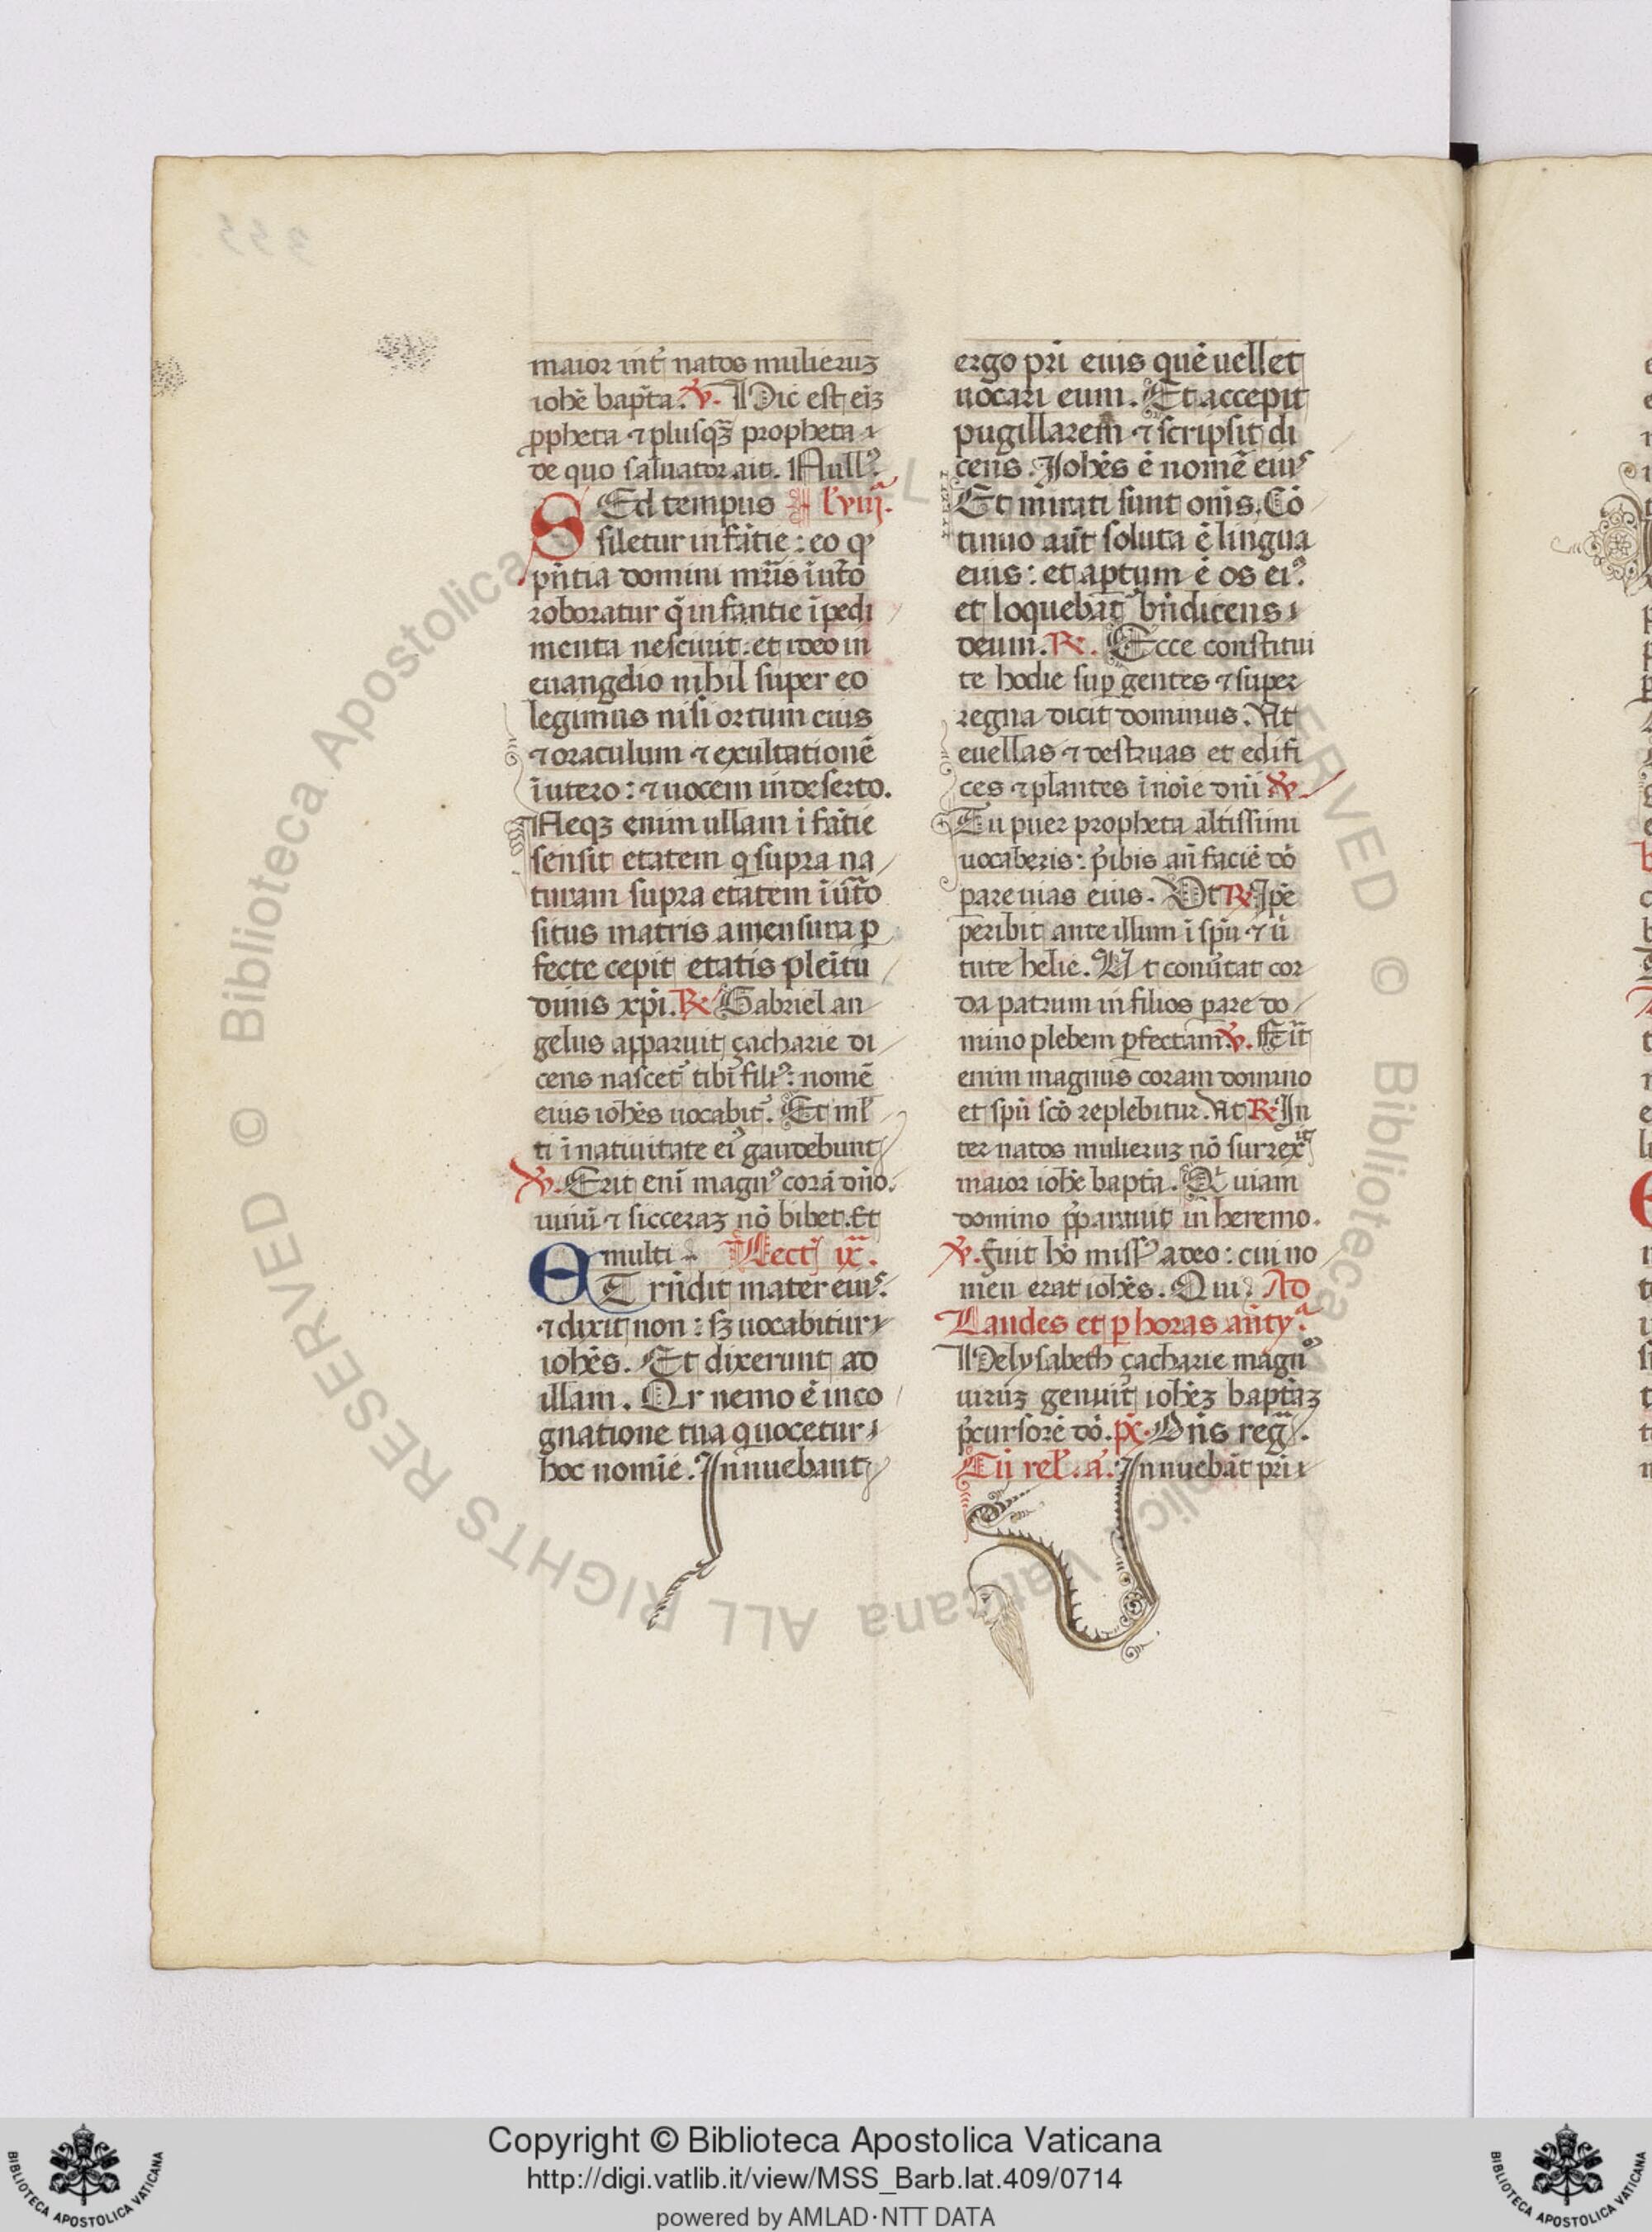 maior int̾ natos mulieruꝫ
ioħe bap̄ta. ꝟ. Hic est eīꝫ
ꝓpheta ⁊ plusqꝫ̄ propheta
de quo saluator ait. Null᷒.
SEd tempus l'viij.ᵃ
siletur infātie: eo qᷓ
pn̄tia domini mr̄is ī ut̄o
roboratur q̄ infantie īpedi
menta nesciuit: et ideo in
euangelio nihil super eo
legimus nisi ortum euis
⁊ oraculum ⁊ exultationē
ī utero: ⁊ uocem in deserto.
Neqꝫ enim ullam ī fātie
sensit etatem q supra na
turam supra etatem ī ut̄o
situs matris a mensura ꝑ
fecte cepit etatis pleitu
dinis xp̄i. ℞ Gabriel an
gelus apparuit çacharie di
cens nascet᷒ tibi fili᷒: nomē
eius ioħes uocabit᷒. Et ml'
ti ī natiuitate ei᷒ gaudebunt
ꝟ. Erit eni magn᷒ corā dn̄o.
uinū ⁊ sicceraꝫ nō bibet. Et
multi Lect̄ ix.ᵃ
ET rn̄dit mater eius.
⁊ dixit non: sꝫ uocabitur
ioħes. Et dixerunt ad
illam. Qr nemo ē in co
gnatione tua q uocetur
hoc nomīe. Innuebant
ergo pr̄i euis quē uellet
uocari eum. Et accepit
pugillarem ⁊ scripsit di
cens. Ioħes ē nomē eius
Et mirati sunt om̄s. Cō
tinuo aūt soluta ē lingua
euis: et aptum ē os ei᷒.
et loquebat᷒ bn̄dicens
deum. ℞. Ecce constitui
te hodie suꝑ gentes ⁊ super
regna dicit dominus. Ut
euellas ⁊ destruas et edifi
ces ⁊ plantes ī noīe dn̄i ꝟ.
Tu puer propheta altissimi
uocaberis: p̄ibis an̄ faciē dō
parare uias eius. Ut ℞ Ip̄e
peribit ante illum ī spū ⁊ ū
tute helie. Ut conūtat cor
da patrum in filios ꝑare do
mino plebem ꝑfectam ꝟ. Eīt
enim magnus coram domino
et spū scō replebitur. Ut ℞ In
ter natos mulieruꝫ nō surrexit
maior ioħe bapt̄a. Q uiam
domino p̄parauit in heremo.
ꝟ. Fuit hō miss᷒ a deo: cui no
men erat ioħes. Qui Ad
Laudes et ꝑ horas an̄ty.ᵃ
Helysabeth çacharie magn᷒
uiruꝫ genuit ioħeꝫ bapt̄aꝫ
p̄cursorē dō. p̄x. Dn̄s reḡ.
Cū rel'. a. Innuebāt pr̄i
Copyright © Biblioteca Apostolica Vaticana
http://digi.vatlib.it/view/MSS_Barb.lat.409/0714
powered by AMLAD·NTT DATA